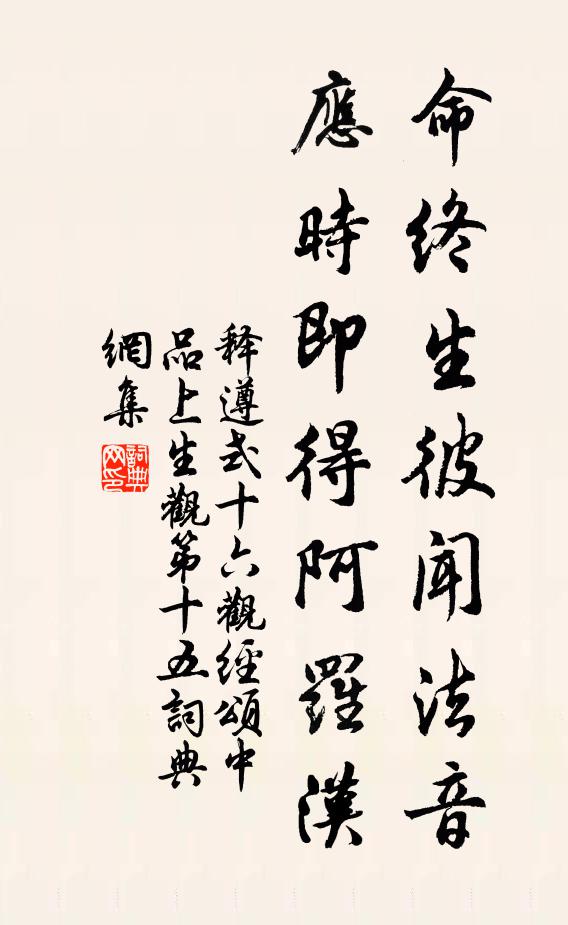 命終生彼聞法音
應時即得阿羅漢
释遵式十六觀經頌中
品上生觀第十五詞典
網集
詞典
网印